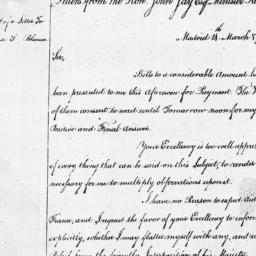 from the Hon. John Jay Esq. Minister
Jay's Letter to
Blanca
Madrid 14th March
Sir,
Bills to a considerable Amount
been presented to me this Afternoon for Payment. The
of them consent to wait until Tomorrow noon for my
Positive and Final Answer.
Your Excellency is too well
of every thing that can be said on this Subject, to render
necessary for me to multiply observations upon it.
I have no Reason to expect
France, and I request the favor of your Excellency to inform
explicitly, whether I may flatter myself with any, and
the friendly Interposition of his Majesty